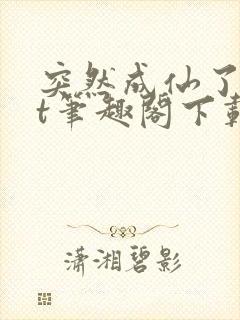 突然成仙了
t筆趣閣下載
潇湘碧影